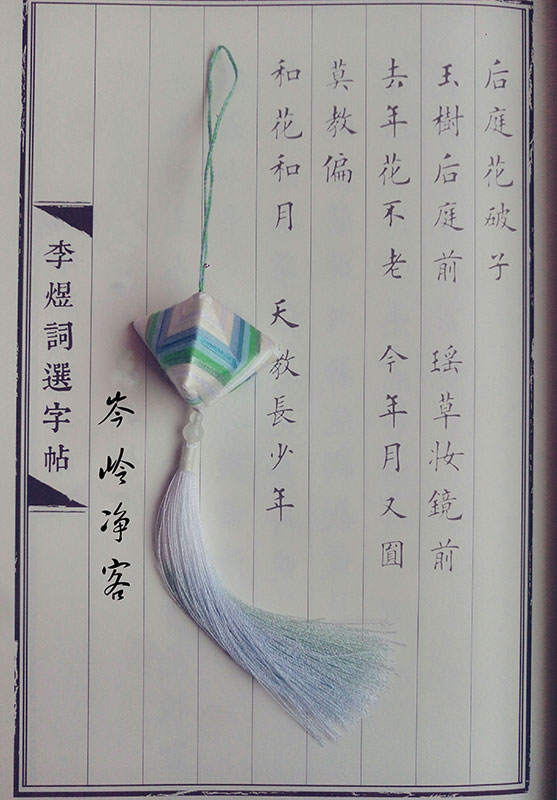 后庭花破子
玉樹后庭前 瑶草妆鏡前
去年花不老 今年月又圓
莫教偏
和花和月 天教長少年
岑岭净客
李煜詞選字帖